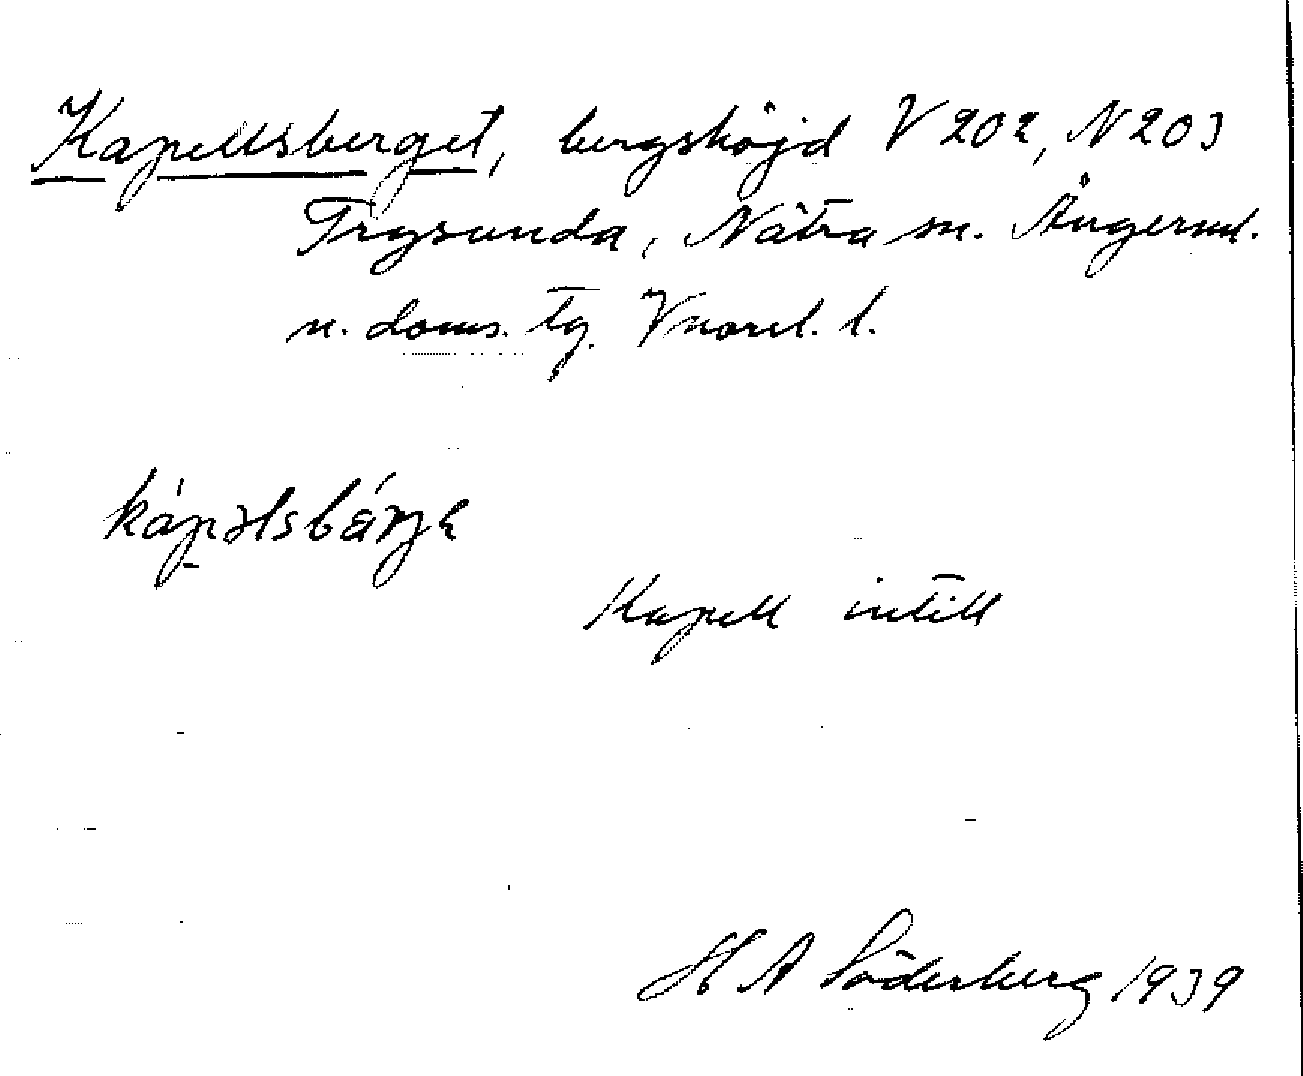 Kapellsberget, bergshöjd V 202, N 203
Trysunda, Nätra sn. Ångerml.
n. doms. tg. Vnorrl. l.
kápəlsbárjɛ
Kapell intill
H A Söderberg 1939